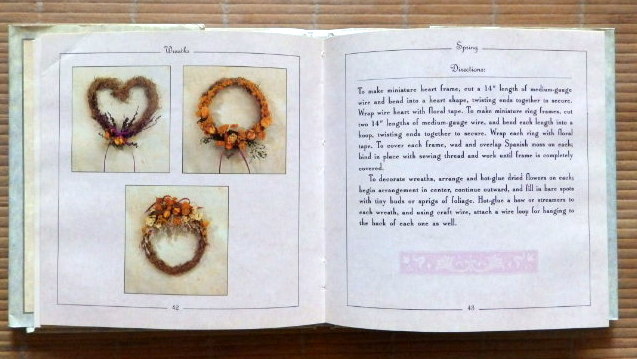 Wreaths
42
Spring
Directions:
To make miniature heart frame, cut a 14" length of medium-gauge
wire and bend into a heart shape, twisting ends together to secure.
Wrap wire heart with floral tape. To make miniature ring frames, cut
two 14" lengths of medium-gauge wire, and bend each length into a
loop, twisting ends together to secure. Wrap each ring with floral
tape. To cover each frame, wad and overlap Spanish moss on each;
bind in place with sewing thread and work until frame is completely
covered.
To decorate wreaths, arrange and hot-glue dried flowers on each;
begin arrangement in center, continue outward, and fill in bare spots
with tiny buds or sprigs of foliage. Hot-glue a bow or streamers to
each wreath, and using craft wire, attach a wire loop for hanging to
the back of each one as well.
43